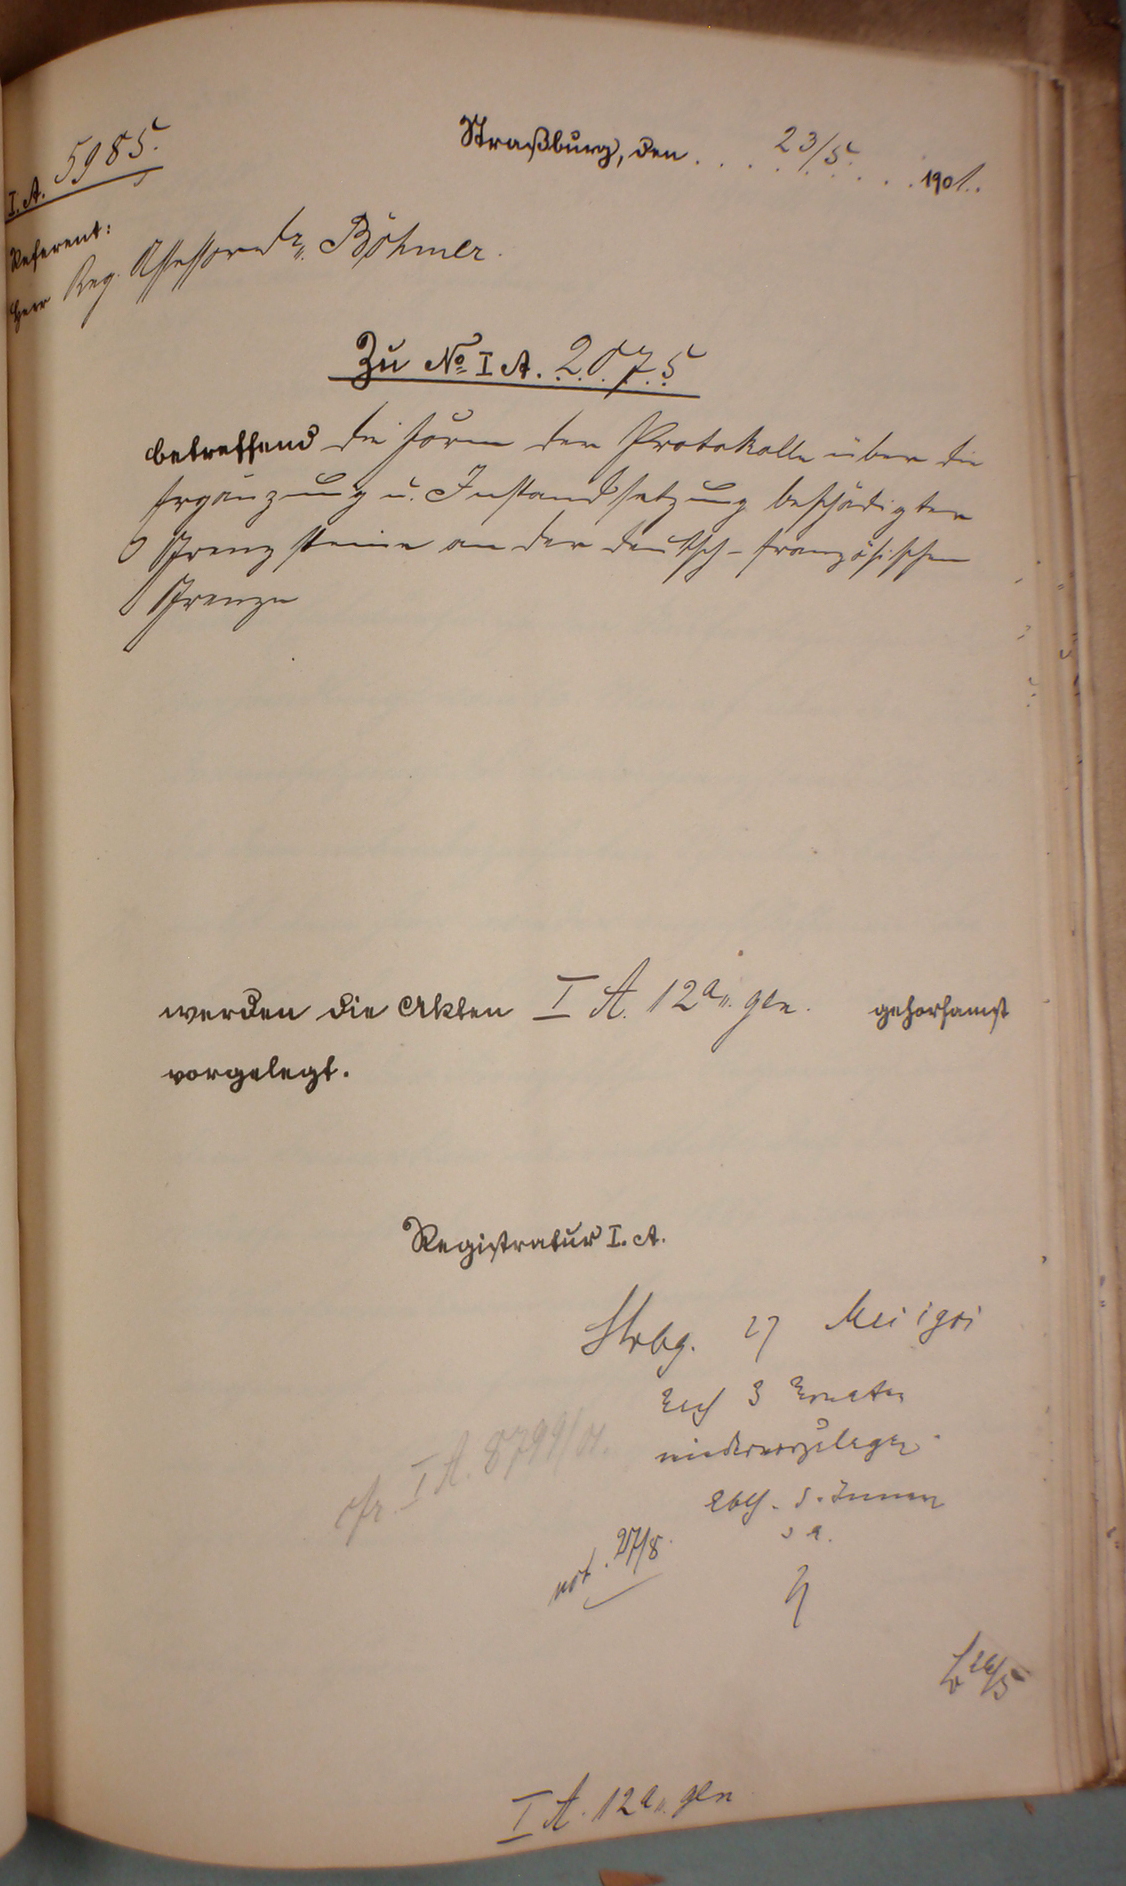 I. A. 5985.
Straßburg, den 23/5. 1901.
Referent:
Herr Reg. Assessor Dr. Böhmer.
Zu No. I A. 2075
betreffend die Form der Protokolle über die
Ergänzung u. Instandsetzung beschädigter
Grenzsteine an der deutsch-französischen
Grenze
werden die Akten I A. 12a gen. gehorsamst
vorgelegt.
Registratur I. A.
Strbg. 27 Mai 1901
Nach 3 Monaten
wiedervorzulegen.
Abth. d. Innern
cfr. I A. 8799/01.
not. 27/8.
26/5
I A. 12a gen